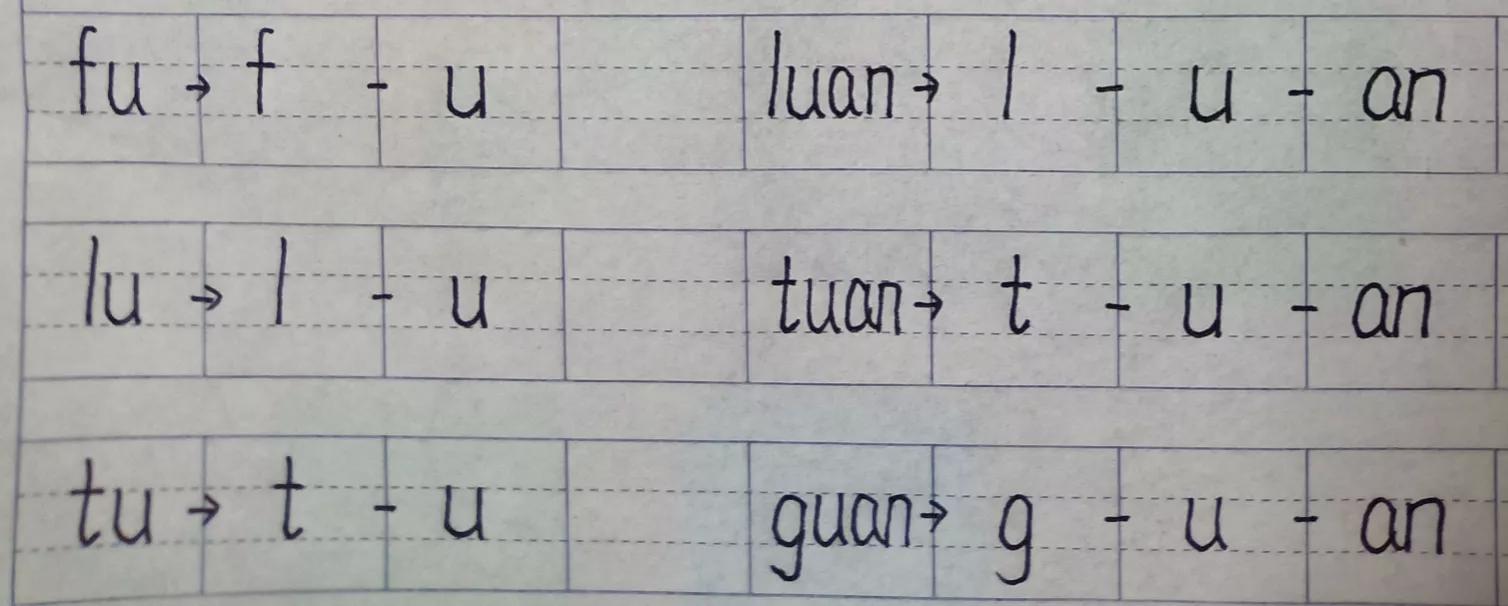 fu → f - u luan → l - u - an
lu → l - u tuan → t - u - an
tu → t - u guan → g - u - an